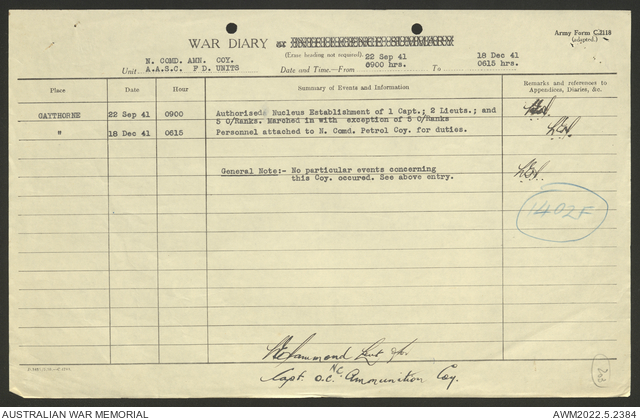 Army Form C.2118
(adapted.)
WAR DIARY or INTELLIGENCE SUMMARY
(Erase heading not required).
N. COMD. AMN. COY.
Unit. A.A.S.C. F D. UNITS
22 Sep 41 18 Dec 41
Date and Time.—From 0900 hrs. To 0615 hrs.
Place Date Hour Summary of Events and Information Remarks and references to Appendices, Diaries, &c.
GAYTHORNE 22 Sep 41 0900 Authorised Nucleus Establishment of 1 Capt.; 2 Lieuts.; and
5 O/Ranks. Marched in with exception of 5 O/Ranks
" 18 Dec 41 0615 Personnel attached to N. Comd. Petrol Coy. for duties.
General Note:- No particular events concerning
this Coy. occured. See above entry.
1402F
Hammond Lieut for
Capt. O.C. N.C. Ammunition Coy.
AUSTRALIAN WAR MEMORIAL AWM2022.5.2384